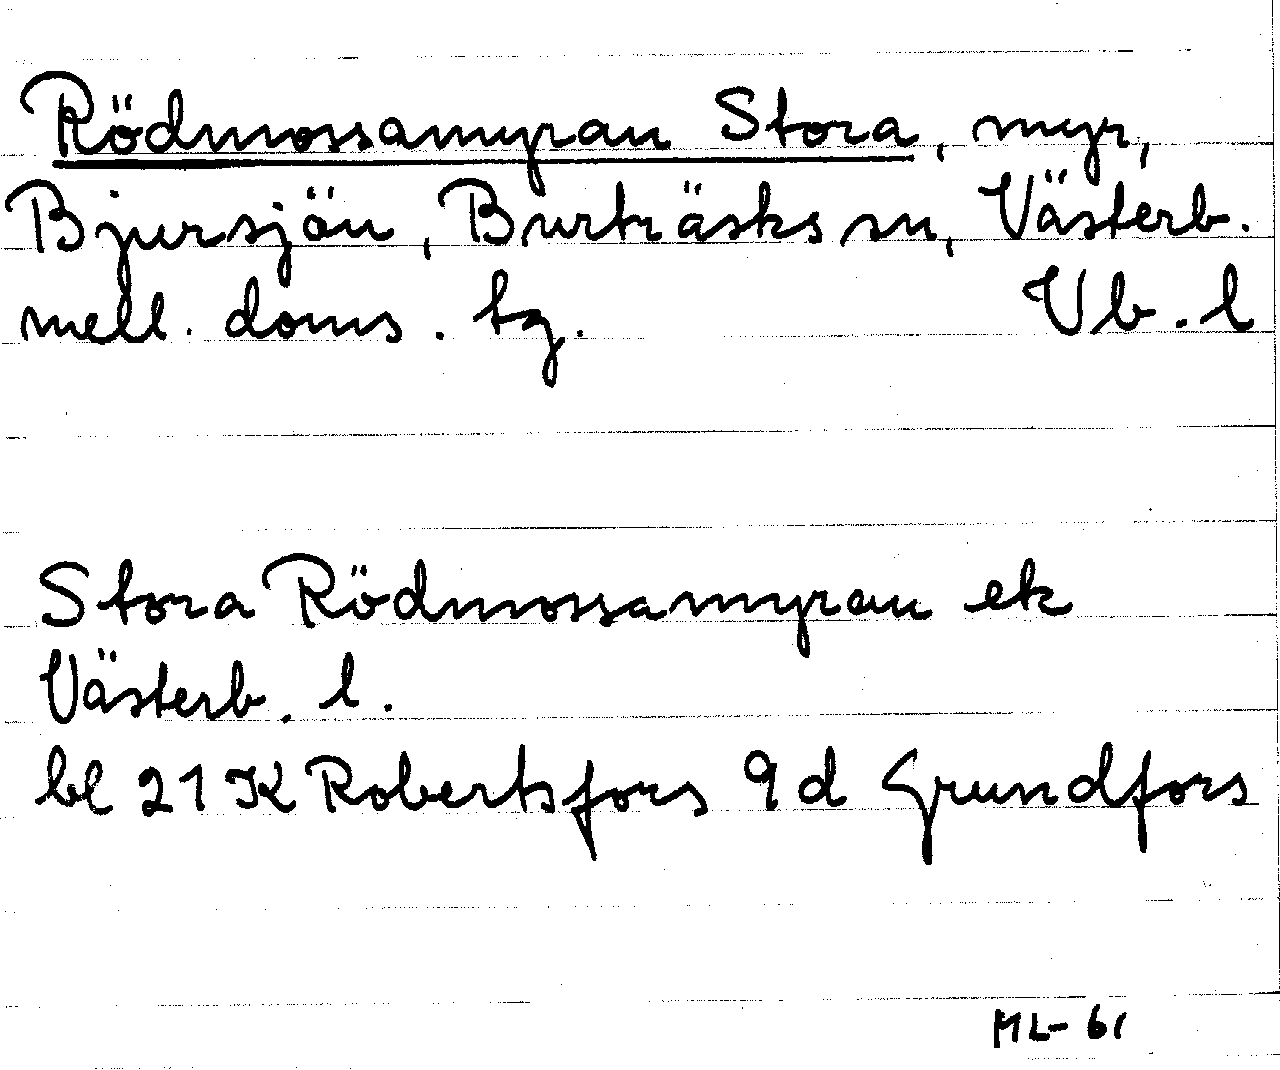 Rödmossamyran Stora, myr,
Bjursjön, Burträsks sn, Västerb.
mell. doms. tg. Vb. l
Stora Rödmossamyran ek
Västerb. l.
bl 21 K Robertsfors 9d Grundfors
ML-61